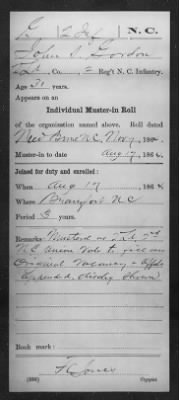 G 2 Inf N. C.
John S. Gordon
Co., 2 Reg't N. C. Infantry.
Age 31 years.
Appears on an
Individual Muster-in Roll
of the organization named above. Roll dated
New Berne N.C. Nov 1, 186
Muster-in to date Aug 17, 1864.
Joined for duty and enrolled:
When Aug 17, 1864
Where Beaufort N.C.
Period 3 years.
Remarks: Mustered as 2d
N.C. Union Vols to fill an
Original Vacancy
Book mark:
Jones
(356) Copyist.